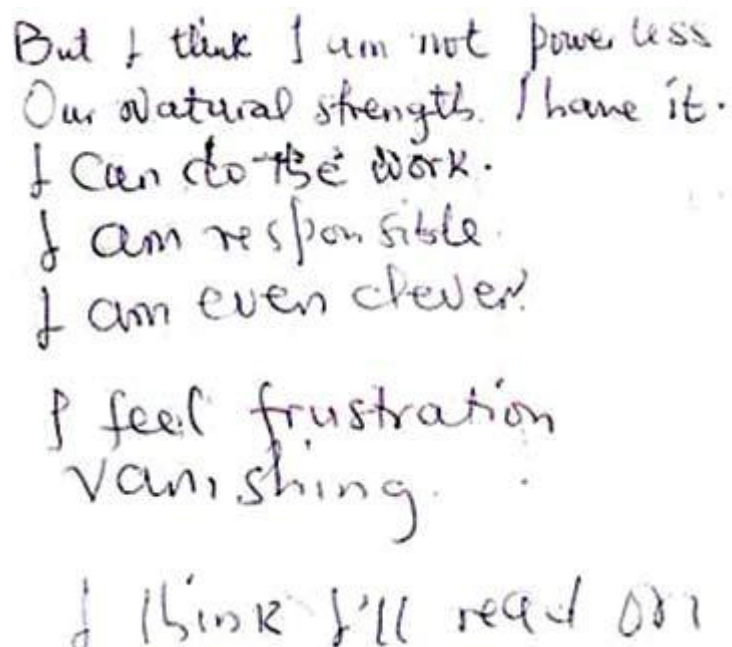 But I think I am not power less
Our Natural strength. I have it.
I can do the work.
I am responsible.
I am even clever.
I feel frustration
vanishing.
I think I'll read on